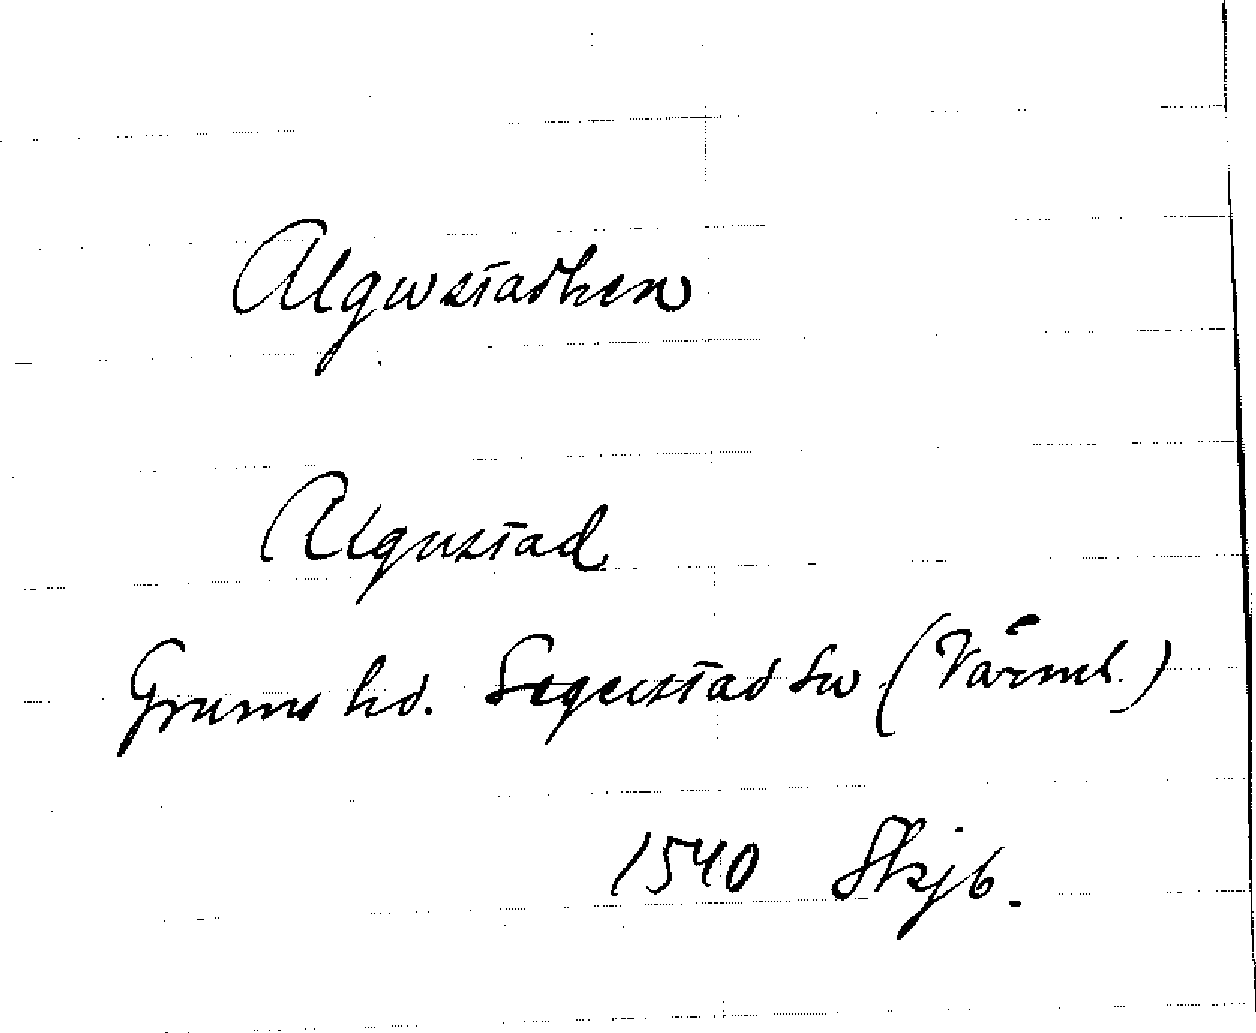 Algwstadhen
Algustad
Grums hd. Segerstad sn (Värml.)
1540 Skjb.